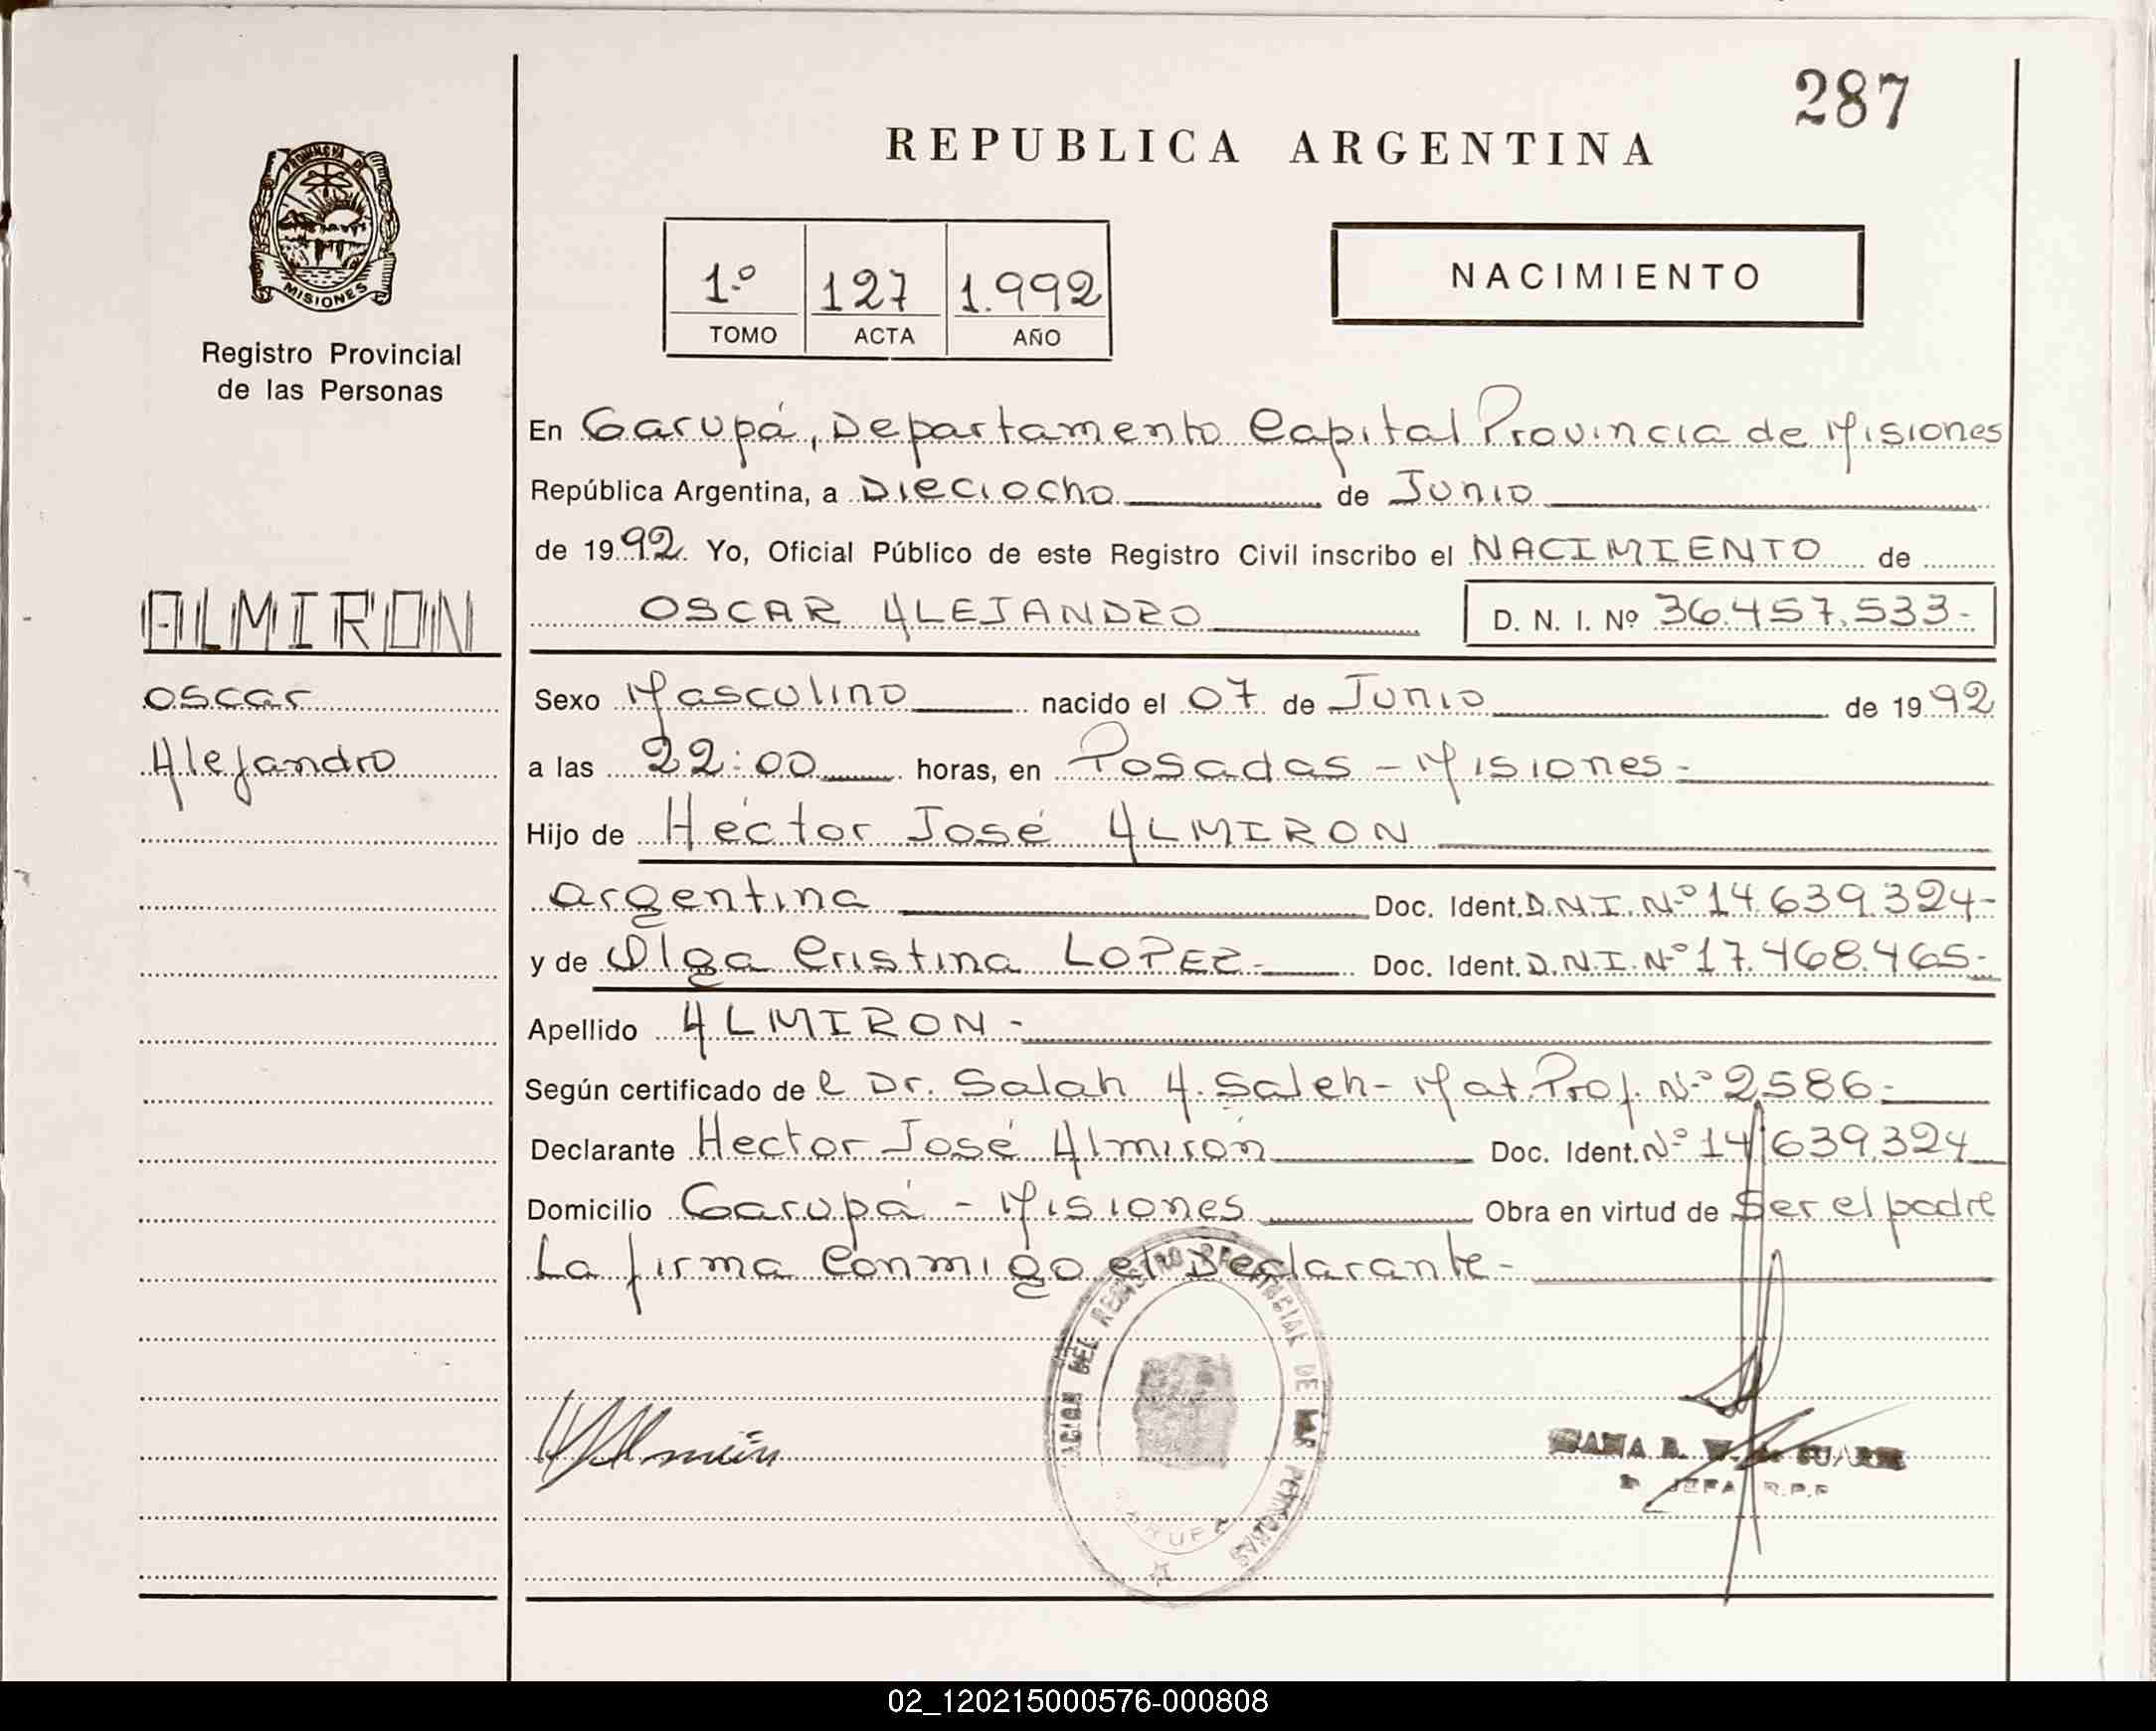 287
REPUBLICA ARGENTINA
PROVINCIA DE
MISIONES
1.º 127 1.992
TOMO ACTA AÑO
NACIMIENTO
Registro Provincial
de las Personas
En Garupá, Departamento Capital Provincia de Misiones
República Argentina, a Dieciocho de Junio
de 1992. Yo, Oficial Público de este Registro Civil inscribo el NACIMIENTO de
OSCAR ALEJANDRO D. N. I. Nº 36.457.533-
ALMIRON
Oscar
Alejandro
Sexo Masculino nacido el 07 de Junio de 1992
a las 22:00 horas, en Posadas - Misiones -
Hijo de Héctor José ALMIRON
argentina Doc. Ident. D.N.I. Nº 14.639.324-
y de Olga Cristina LOPEZ- Doc. Ident. D.N.I. Nº 17.468.465-
Apellido ALMIRON-
Según certificado de l Dr. Salah A. Saleh- Mat. Prof. Nº 2586-
Declarante Hector José Almirón Doc. Ident. Nº 14.639.324
Domicilio Garupá - Misiones Obra en virtud de Ser el padre
La firma conmigo el Declarante-
DEL REGISTRO PROVINCIAL DE LAS PERSONAS
JEFA R.P.P
02_120215000576-000808